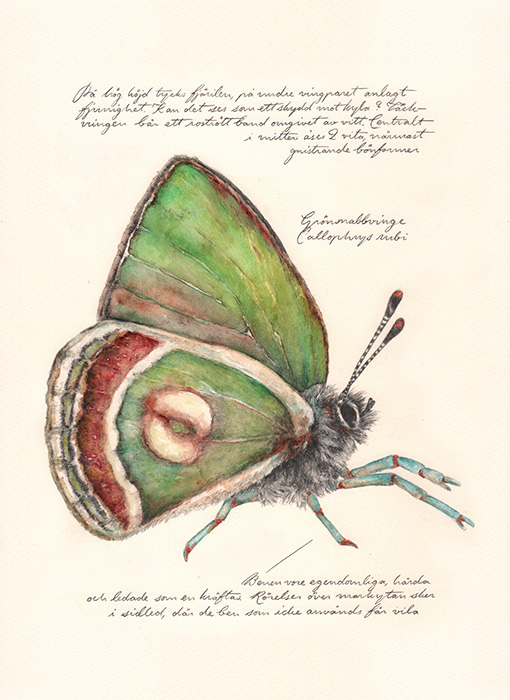 På hög höjd tycks fjärilen, på undre vingparet anlagt
fjunighet. Kan det ses som ett skydd mot kyla? Täck-
vingen bär ett rostrött band omgivet av vitt. Centralt
i mitten åses 2 vita, närmast
gnistrande bönformer
Grönsnabbvinge
Callophrys rubi
Benen vore egendomliga, hårda
och ledade som en kräftas. Rörelser över markytan sker
i sidled, där de ben som icke används får vila